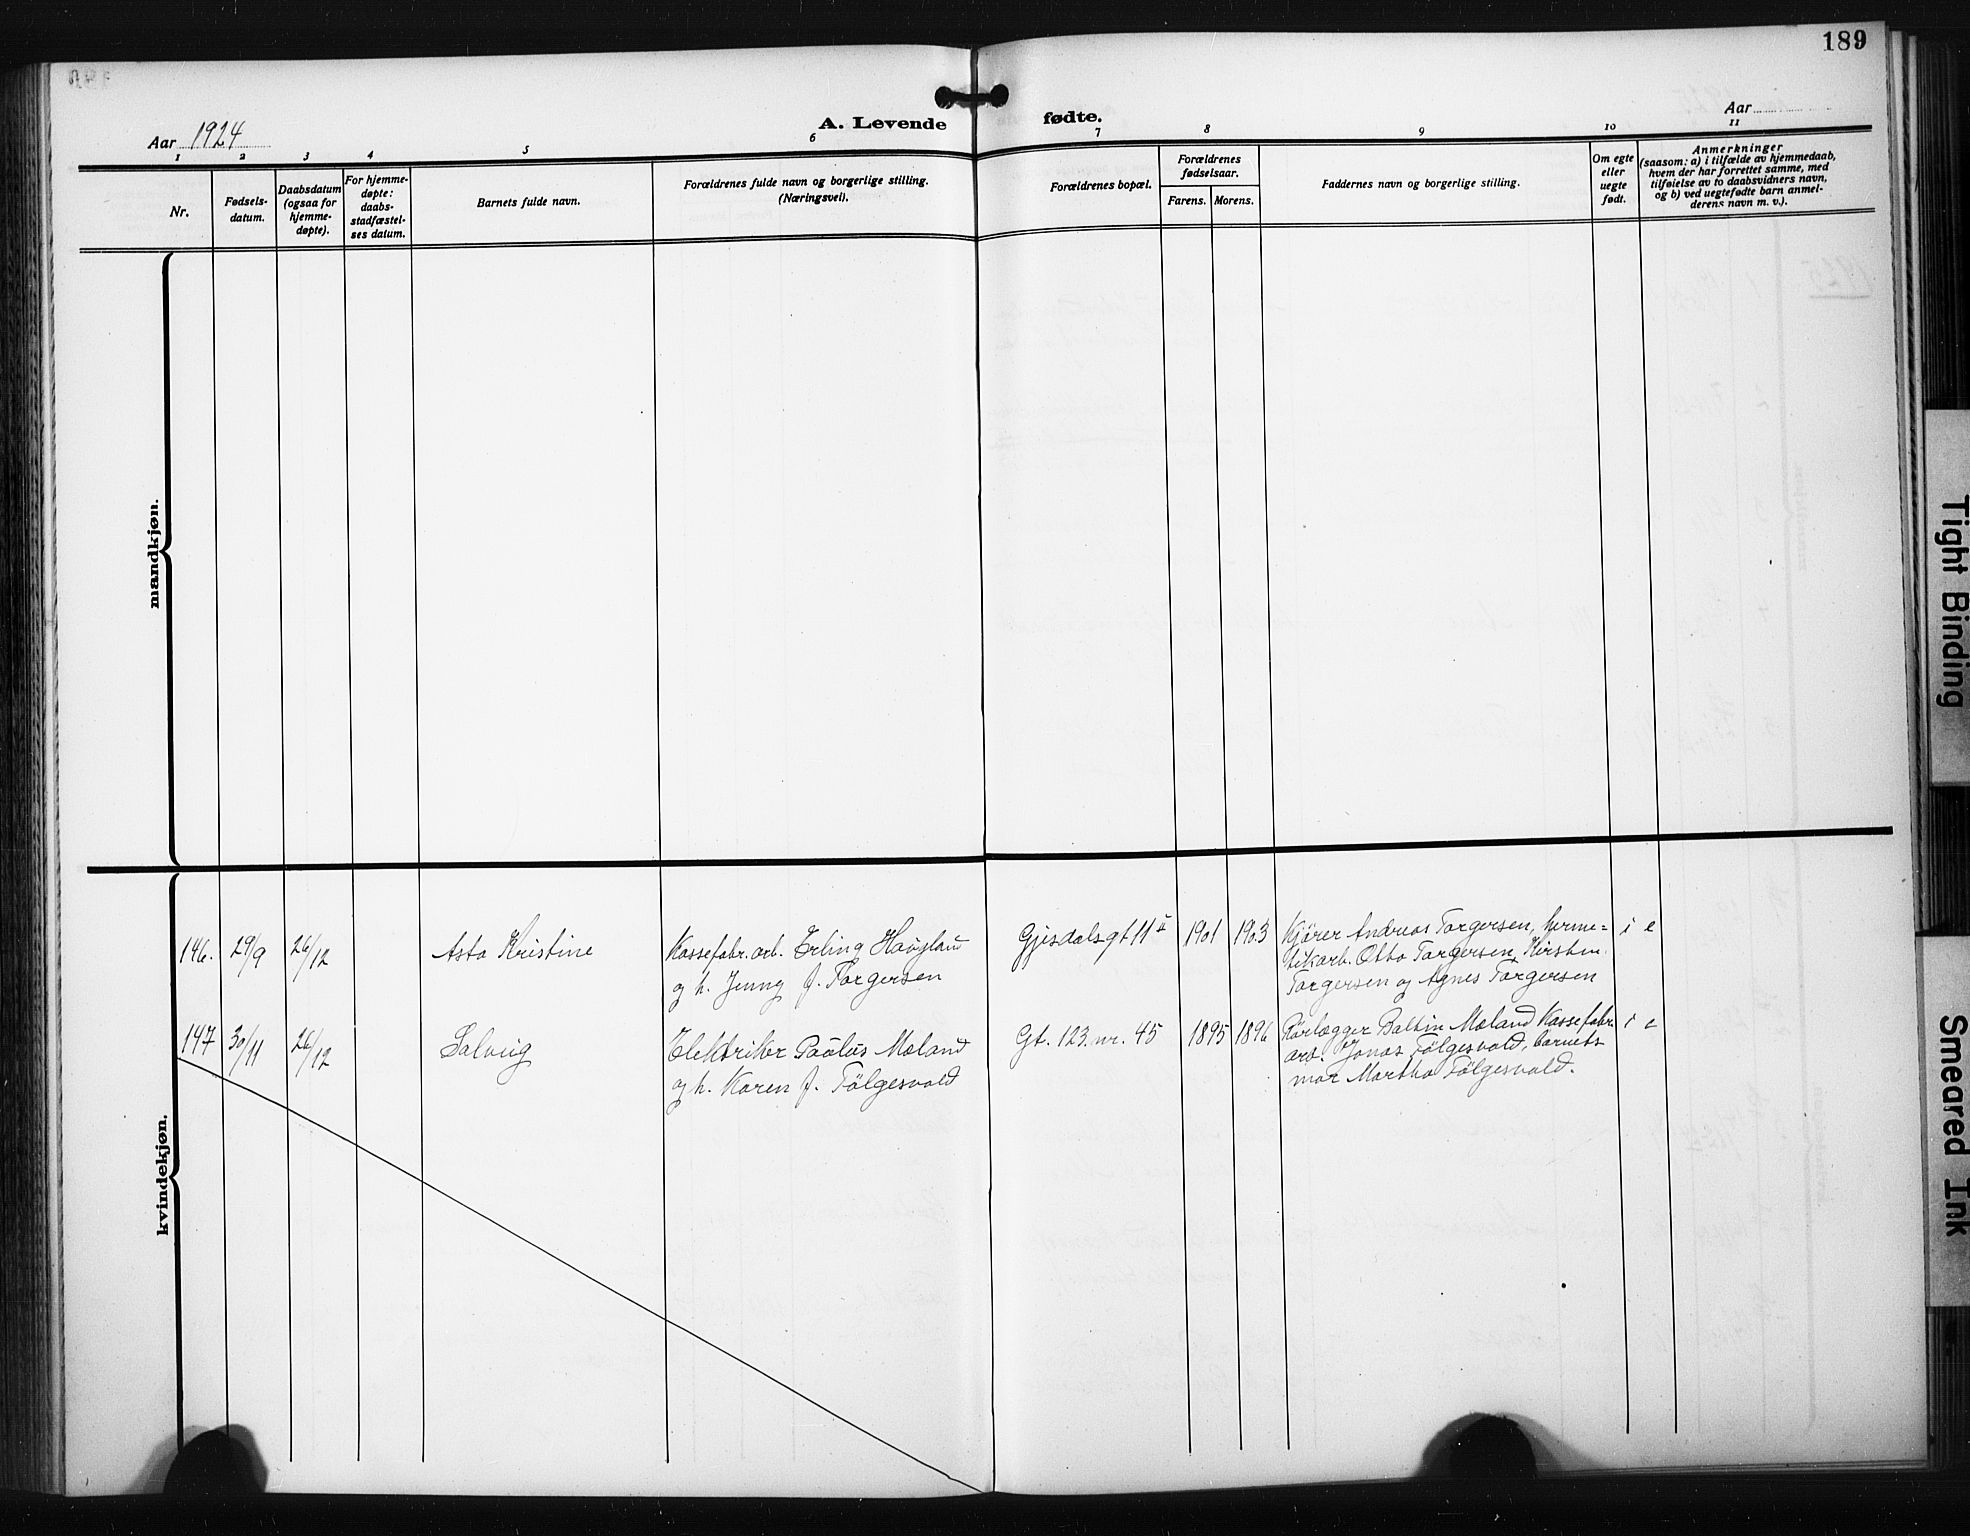 189
Aar 1924
A. Levende fødte.
Aar
1 2 3 4 5 6 7 8 9 10 11
Nr.
Fødsels-
datum.
Daabsdatum
(ogsaa for
hjemme-
døpte).
For hjemme-
døpte:
daabs-
stadfæstel-
ses datum.
Barnets fulde navn.
Forældrenes fulde navn og borgerlige stilling.
(Næringsvei).
Forældrenes bopæl.
Forældrenes
fødselsaar.
Farens. Morens.
Faddernes navn og borgerlige stilling.
Om egte
eller
uegte
født.
Anmerkninger
(saasom: a) i tilfælde av hjemmedaab,
hvem der har forrettet samme, med
tilføielse av to daabsvidners navn,
og b) ved uegtefødte barn anmel-
derens navn m. v.).
mandkjøn.
kvindekjøn.
146. 29/9 26/12
Asta Kristine
Kassefabr. arb. Erling Haugland
og h. Jenny f. Torgersen
Gjesdalsgt 11 II
1901 1903
Kjører Andreas Torgersen, herme=
tikarb. Otto Torgersen, Kirsten
Torgersen og Agnes Torgersen
i e
147 30/11 26/12
Solveig
Elektriker Paulus Mæland
og h. Karen f. Følgesvold
Gt. 123. nr. 45
1895 1896
Rørlægger Baltin Mæland Kassefabr.
arb. Jonas Følgesvold, barnets
mor Martha Følgesvold.
i e
Tight Binding
Smeared Ink